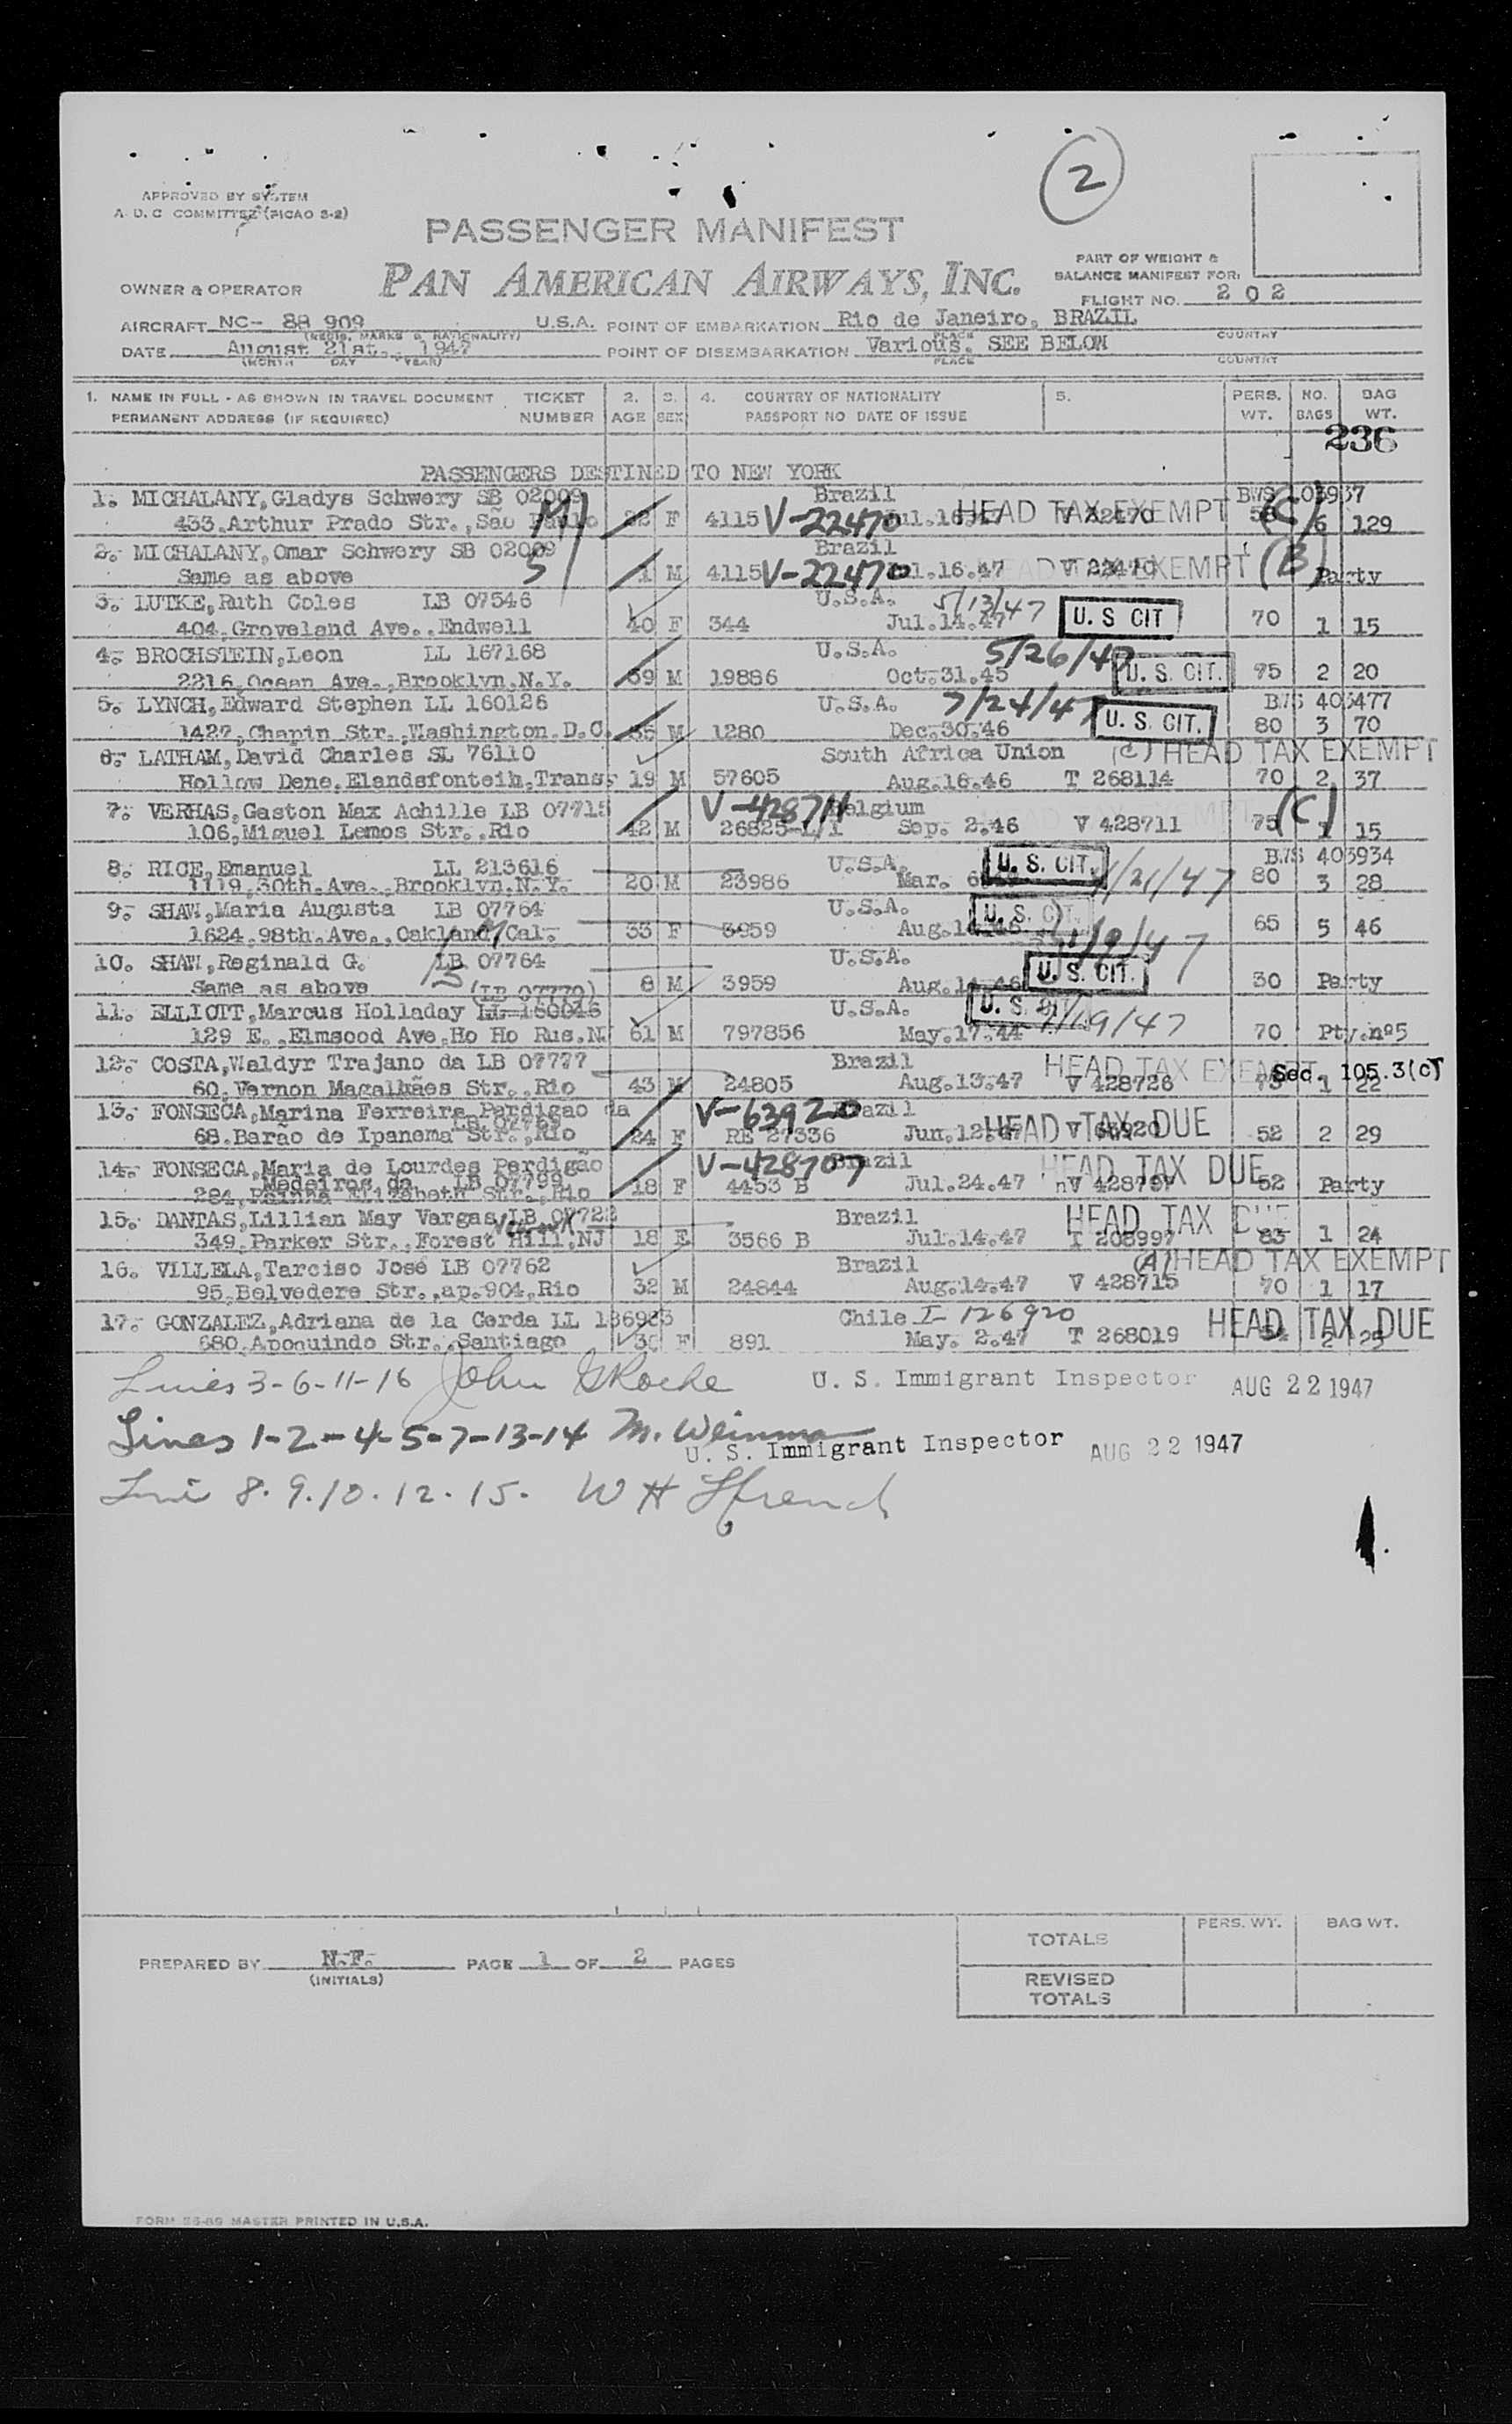 2
APPROVED BY SYSTEM
A. O. C COMMITTEE (PICAO S-2)
PASSENGER MANIFEST
PAN AMERICAN AIRWAYS, INC.
PART OF WEIGHT &
BALANCE MANIFEST FOR:
OWNER & OPERATOR
FLIGHT NO. 2 0 2
AIRCRAFT NC- 88 909 U.S.A. POINT OF EMBARKATION Rio de Janeiro, BRAZIL
(REGIS. MARKS & NATIONALITY) PLACE COUNTRY
DATE August 21st., 1947 POINT OF DISEMBARKATION Various. SEE BELOW
(MONTH DAY YEAR) PLACE COUNTRY
1. NAME IN FULL - AS SHOWN IN TRAVEL DOCUMENT TICKET 2. 3. 4. COUNTRY OF NATIONALITY 5. PERS. NO. BAG
PERMANENT ADDRESS (IF REQUIRED) NUMBER AGE SEX PASSPORT NO DATE OF ISSUE WT. BAGS WT.
236
PASSENGERS DESTINED TO NEW YORK
1.- MICHALANY,Gladys Schwery SB 02009 Brazil BWS 403937
433,Arthur Prado Str.,São Paulo M 22 F 4115 V-22470 Jul.16.47 V 22470 HEAD TAX EXEMPT (C) 6 129
2.- MICHALANY,Omar Schwery SB 02009 Brazil
Same as above S 1 M 4115 V-22470 Jul.16.47 V 22470 HEAD TAX EXEMPT (B) Party
3.- LUTKE,Ruth Coles LB 07546 U.S.A. 5/13/47
404,Groveland Ave.,Endwell 40 F 344 Jul.14.47 U. S CIT 70 1 15
4.- BROCHSTEIN,Leon LL 167168 U.S.A. 5/26/47
2216,Ocean Ave.,Brooklyn.N.Y. 59 M 19886 Oct.31.45 U. S. CIT. 75 2 20
5.- LYNCH,Edward Stephen LL 160126 U.S.A. 7/24/47 BWS 403477
1427,Chapin Str.,Washington.D.C. M 1280 Dec.30.46 U. S. CIT. 80 3 70
6.- LATHAM,David Charles SL 76110 South Africa Union (C) HEAD TAX EXEMPT
Hollow Dene,Elandsfontein,Transv 19 M 57605 Aug.16.46 T 268114 70 2 37
7.- VERHAS,Gaston Max Achille LB 07715 V-428711 Belgium
106,Miguel Lemos Str.,Rio 42 M 26825-L/1 Sep. 2.46 V 428711 75 (C) 1 15
8. RICE,Emanuel LL 213616 U.S.A. U. S. CIT. BWS 403934
1119,30th.Ave.,Brooklyn.N.Y. 20 M 23986 Mar. 6 /21/47 80 3 28
9.- SHAW,Maria Augusta LB 07764 U.S.A. U. S. CIT.
1624.98th.Ave.,Oakland,Cal. M 33 F 3959 Aug.14.46 1/9/47 65 5 46
10. SHAW,Reginald G. LB 07764 U.S.A. U. S. CIT.
Same as above S (LB 07770) 8 M 3959 Aug.14.46 30 Party
11. ELLIOTT,Marcus Holladay U.S.A. U. S. CIT
129 E.,Elmsood Ave,Ho Ho Rus.NJ 61 M 797856 May.17.44 /19/47 70 Pty.nº5
12.- COSTA,Waldyr Trajano da LB 07777 Brazil HEAD TAX EXEMPT Sec. 105.3(c)
60,Vernon Magalhães Str.,Rio 43 M 24805 Aug.13.47 V 428726 75 1 22
13.- FONSECA,Marina Ferreira Perdigao da V-63920 Brazil
LB 07769
68.Barão de Ipanema Str.,Rio 24 F RE 27336 Jun.12.47 V 63920 HEAD TAX DUE 52 2 29
14.- FONSECA,Maria de Lourdes Perdigão V-428707 Brazil HEAD TAX DUE
Medeiros da LB 07799
284,Rainha Elizabeth Str.,Rio 18 F 4453 B Jul.24.47 V 428707 52 Party
15.- DANTAS,Lillian May Vargas LB 07722 Brazil HEAD TAX DUE
349,Parker Str.,Forest Hill,NJ Newark 18 F 3566 B Jul.14.47 T 208997 83 1 24
16.- VILLELA,Tarciso José LB 07762 Brazil (A) HEAD TAX EXEMPT
95,Belvedere Str.,ap.904,Rio 32 M 24844 Aug.14.47 V 428715 70 1 17
17.- GONZALEZ,Adriana de la Cerda LL 136983 Chile I-126920
680,Apoquindo Str.,Santiago F 891 May. 2.47 T 268019 HEAD TAX DUE 54 2 25
Lines 3-6-11-16 John G Roche U. S. Immigrant Inspector AUG 22 1947
Lines 1-2-4-5-7-13-14 M. Weinman
U. S. Immigrant Inspector AUG 22 1947
Line 8.9.10.12.15. W H
TOTALS PERS. WT. BAG WT.
PREPARED BY N.F. PAGE 1 OF 2 PAGES
(INITIALS)
REVISED
TOTALS
FORM 26-89 MASTER PRINTED IN U.S.A.